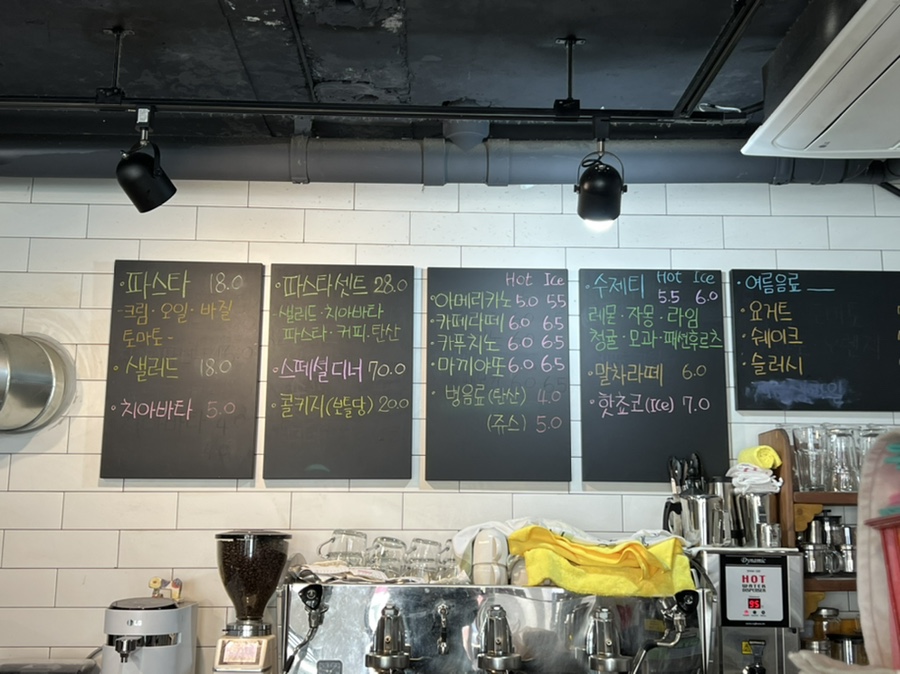 ·파스타 18.0
-크림·오일·바질
토마토-
·샐러드 18.0
·치아바타 5.0
·파스타셋트 28.0
샐러드·치아바타
파스타·커피.탄산
·스페셜디너 70.0
·콜키지(본틀당) 20.0
Hot Ice
·아메리카노 5.0 5.5
·카페라떼 6.0 6.5
·카푸치노 6.0 6.5
·마끼야또 6.0 6.5
병음료(탄산) 4.0
(쥬스) 5.0
·수제티 Hot Ice
5.5 6.0
레몬·자몽·라임
청귤·모과·패션후르츠
·말차라떼 6.0
·핫쵸코(Ice) 7.0
·여름음료
·요거트
·쉐이크
·슬러시
Dynamic
HOT
WATER
DISPENSER
95